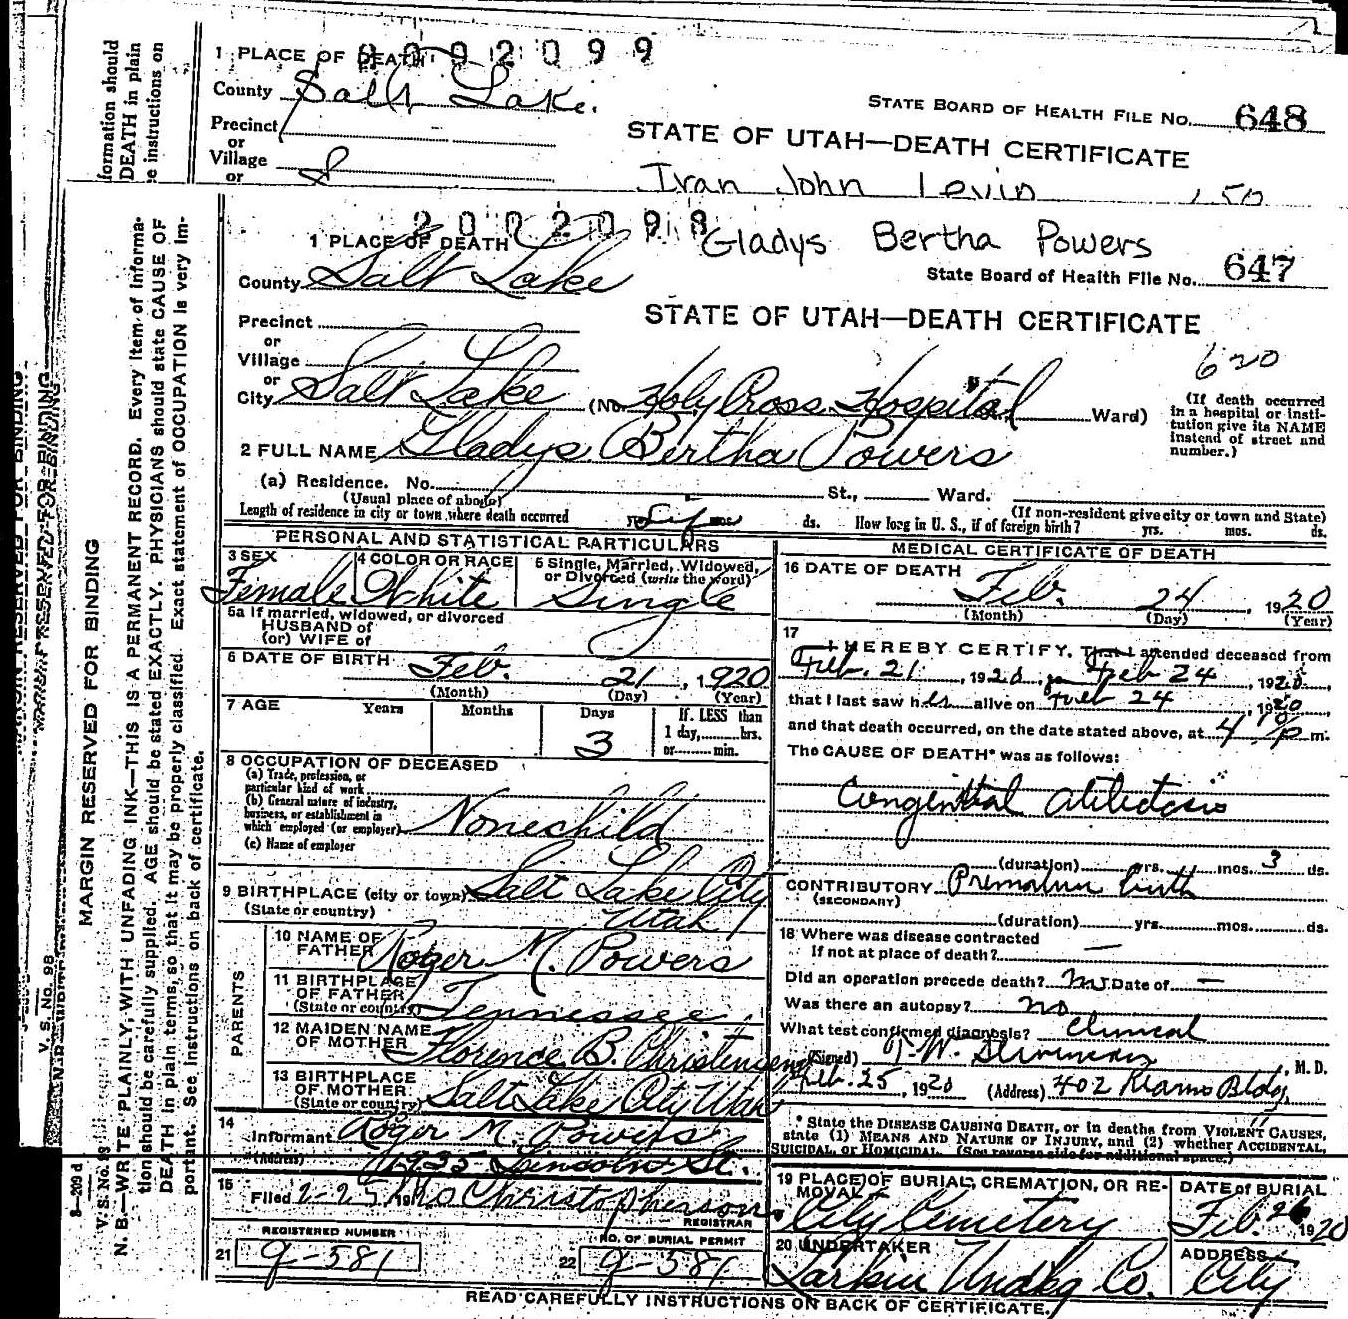 1 PLACE OF DEATH 0092099
County Salt Lake.
STATE BOARD OF HEALTH FILE No. 648
Precinct
or
STATE OF UTAH—DEATH CERTIFICATE
Village
or
Ivan John Levin
formation should
DEATH in plain
e instructions on
2002098
1 PLACE OF DEATH
Gladys Bertha Powers
County Salt Lake
State Board of Health File No. 647
Precinct
STATE OF UTAH—DEATH CERTIFICATE
or
Village
620
or
City Salt Lake (No. Holy Cross Hospital Ward)
(If death occurred
in a hospital or insti-
tution give its NAME
instead of street and
number.)
2 FULL NAME Gladys Bertha Powers
(a) Residence. No. St., Ward.
(Usual place of abode)
(If non-resident give city or town and State)
Length of residence in city or town where death occurred ds. How long in U. S., if of foreign birth? yrs. mos. ds.
PERSONAL AND STATISTICAL PARTICULARS
3 SEX
Female
4 COLOR OR RACE
White
5 Single, Married, Widowed,
or Divorced (write the word)
Single
5a If married, widowed, or divorced
HUSBAND of
(or) WIFE of
6 DATE OF BIRTH Feb. 21, 1920
(Month) (Day) (Year)
7 AGE Years Months Days If LESS than
3 1 day, hrs.
or min.
8 OCCUPATION OF DECEASED
(a) Trade, profession, or
particular kind of work
(b) General nature of industry,
business, or establishment in
which employed (or employer) None child
(c) Name of employer
9 BIRTHPLACE (city or town) Salt Lake City
(State or country) Utah
PARENTS
10 NAME OF
FATHER Roger M. Powers
11 BIRTHPLACE
OF FATHER
(State or country) Tennessee
12 MAIDEN NAME
OF MOTHER Florence B. Christensen
13 BIRTHPLACE
OF MOTHER
(State or country) Salt Lake City Utah
14
Informant Roger M. Powers
(Address) 1935 Lincoln St.
15
Filed 2-25 19 Christopherson
REGISTRAR
REGISTERED NUMBER
21 9-581
NO. OF BURIAL PERMIT
22 9-581
MEDICAL CERTIFICATE OF DEATH
16 DATE OF DEATH
Feb. 24, 1920
(Month) (Day) (Year)
17
I HEREBY CERTIFY, That I attended deceased from
Feb. 21, 1920, to Feb 24, 1920,
that I last saw h alive on Feb 24, 1920
and that death occurred, on the date stated above, at 4 p m.
The CAUSE OF DEATH* was as follows:
Congenital Atilectasis
(duration) yrs. mos. 3 ds.
CONTRIBUTORY Premature birth
(SECONDARY)
(duration) yrs. mos. ds.
18 Where was disease contracted
If not at place of death? —
Did an operation precede death? no Date of —
Was there an autopsy? no
What test confirmed diagnosis? Clinical
(Signed) T. W. M. D.
Feb. 25, 1920 (Address) 402 Kearns Bldg,
* State the DISEASE CAUSING DEATH, or in deaths from VIOLENT CAUSES,
state (1) MEANS AND NATURE OF INJURY, and (2) whether ACCIDENTAL,
SUICIDAL, or HOMICIDAL. (See reverse side for additional space.)
19 PLACE OF BURIAL, CREMATION, OR RE-
MOVAL
City Cemetery
DATE of BURIAL
Feb. 26 1920
20 UNDERTAKER
Larkin Undkg Co.
ADDRESS
City
READ CAREFULLY INSTRUCTIONS ON BACK OF CERTIFICATE.
MARGIN RESERVED FOR BINDING
N. B.—WRITE PLAINLY, WITH UNFADING INK—THIS IS A PERMANENT RECORD. Every item of informa-
tion should be carefully supplied. AGE should be stated EXACTLY. PHYSICIANS should state CAUSE OF
DEATH in plain terms, so that it may be properly classified. Exact statement of OCCUPATION is very im-
portant. See instructions on back of certificate.
V. S. No. 98